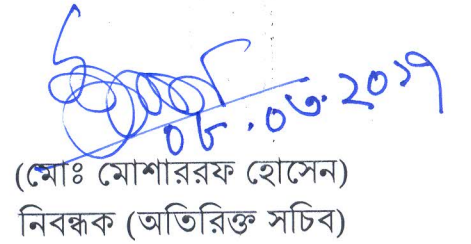 ০৮.০৩.২০১৭
(মোঃ মোশাররফ হোসেন)
নিবন্ধক (অতিরিক্ত সচিব)